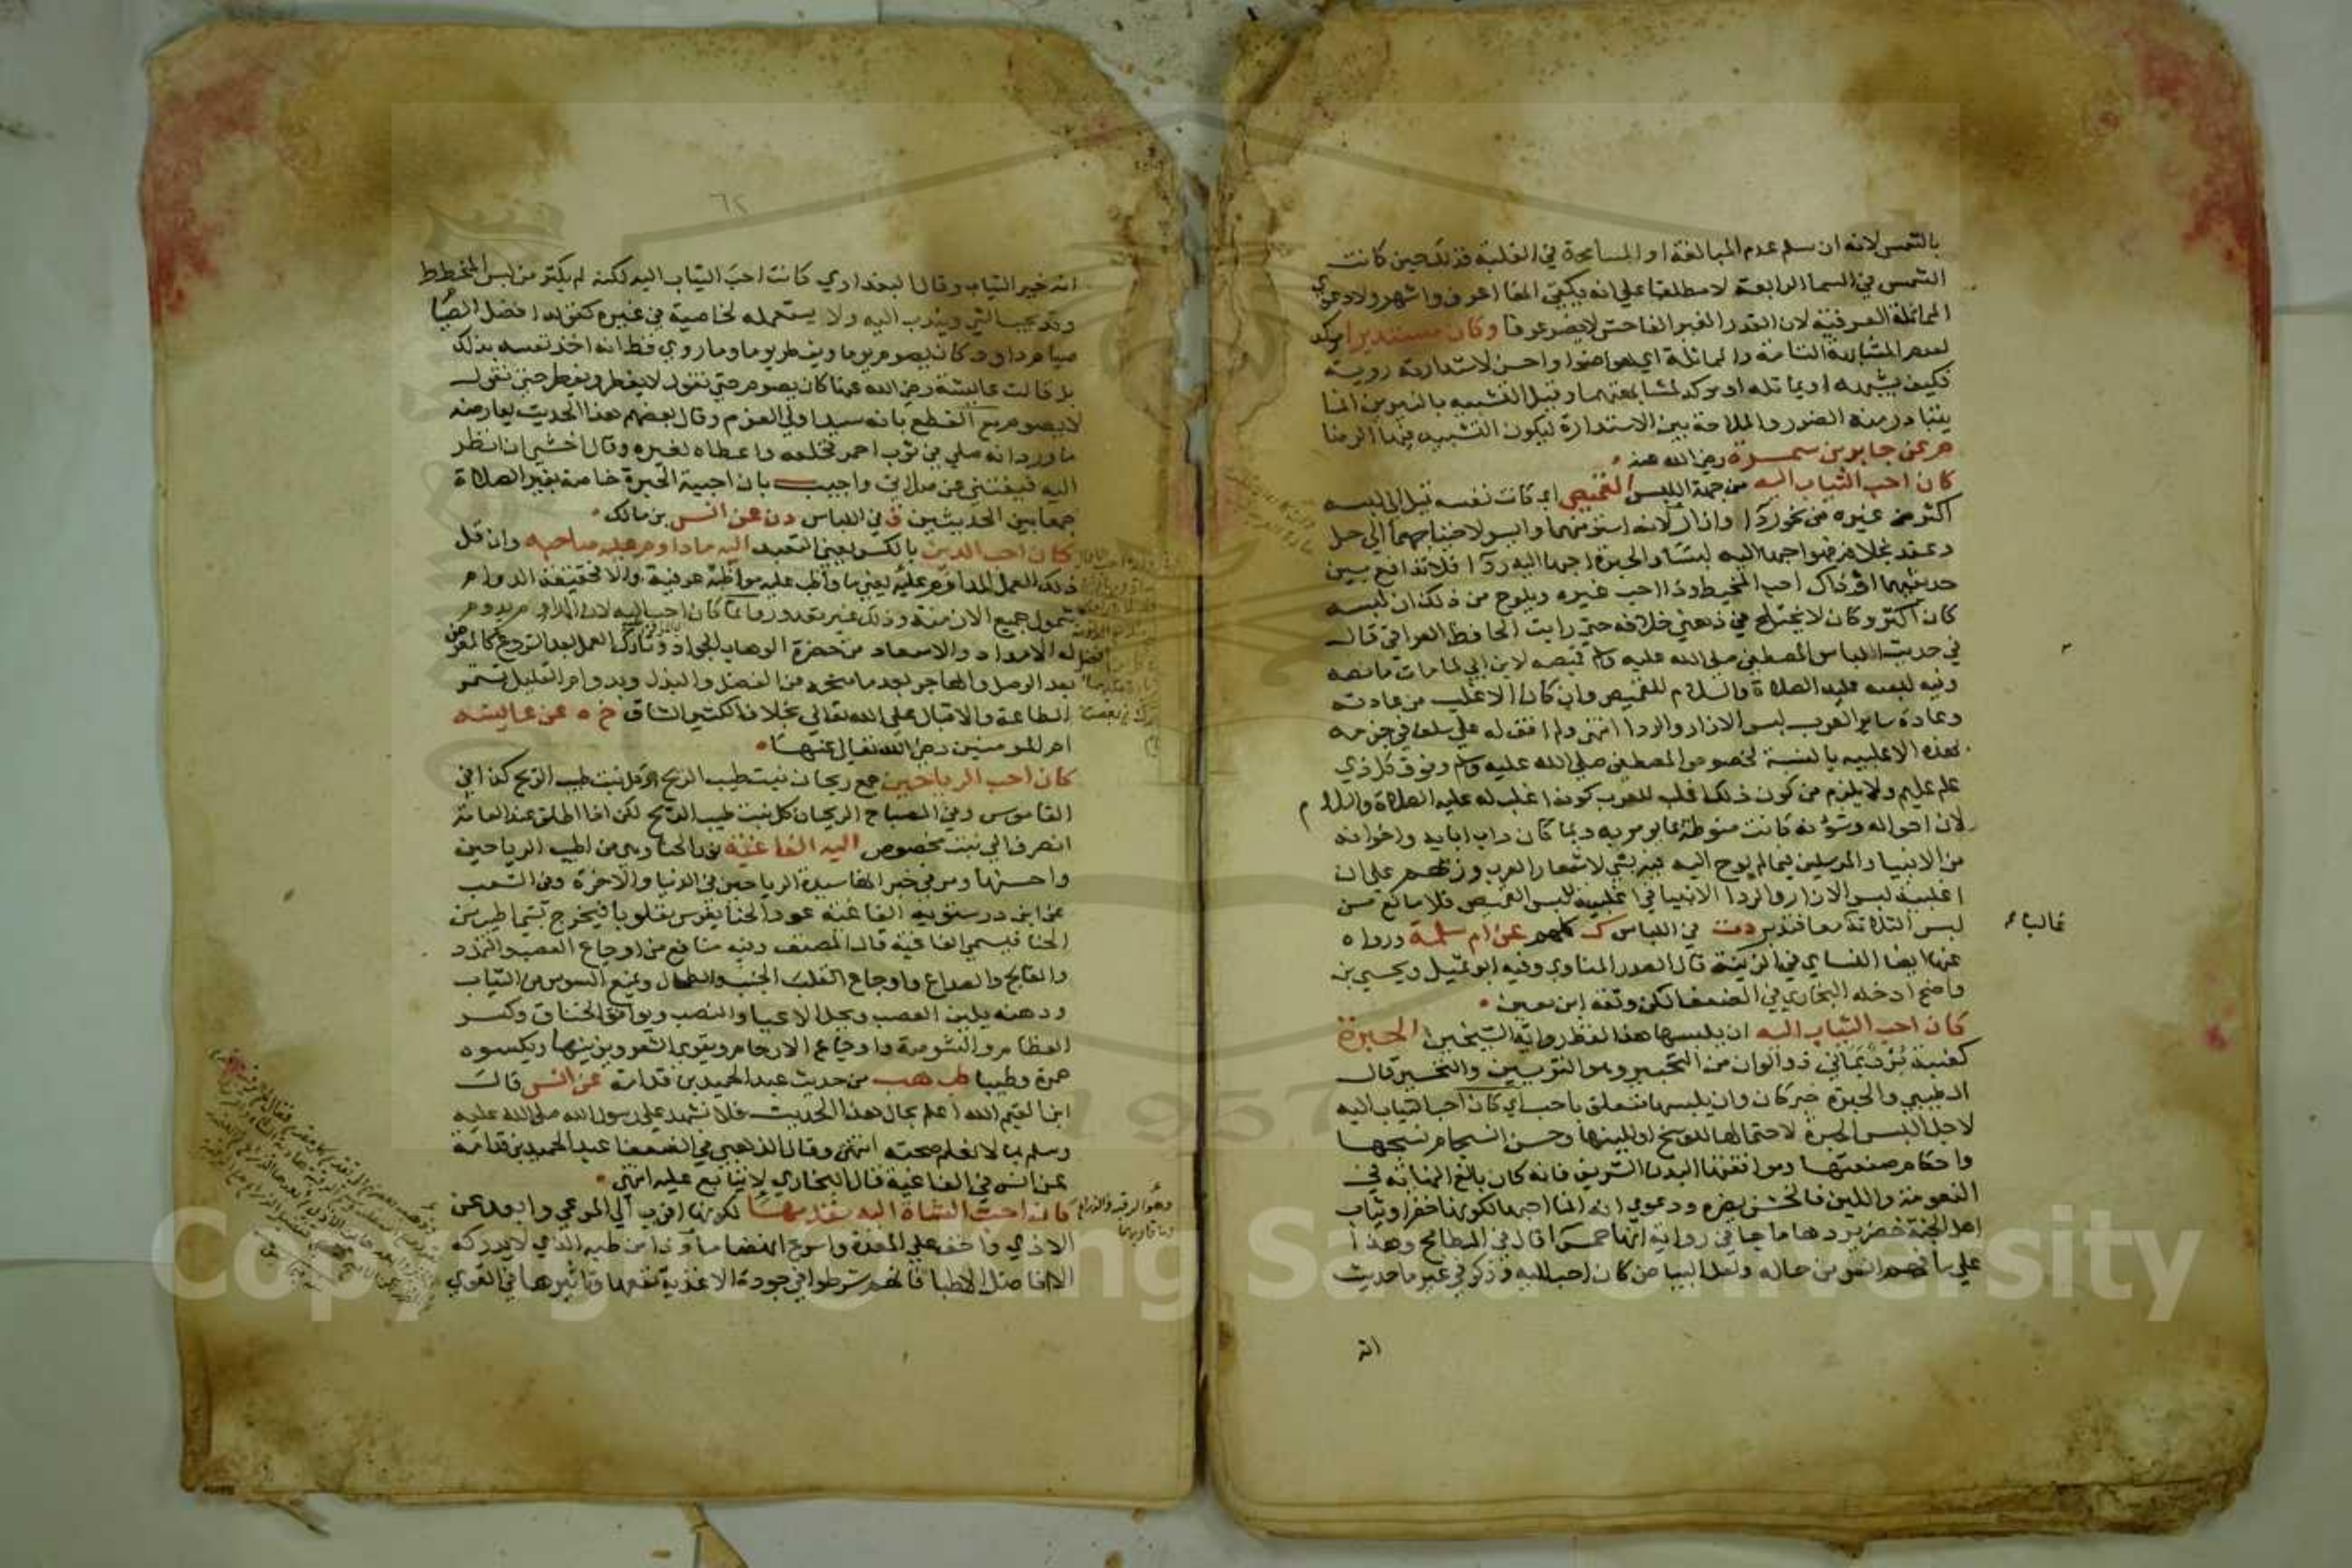 بالشمس لانه ان سلم عدم المبالغة او المسامحة في الغلبة فذلك حين كانت
الشمس في السما الرابعة لا مطلقا علي انه يكفي انها اعرف واشهر ولا دعوي
المماثلة العرفية لان القدر الغير الفاحش لا يضر عرفا وكان مستديرا موكد
لعدم المشابهة التامة والمماثلة اي هو اضوا واحسن لاستدارته دونه
فكيف يشبهه او يماثله او موكد لمشابهتهما وقيل التشبيه بالنيرين انما
يتبادر منه الضوء والملاحة بين الاستدارة ليكون التشبيه فيها ايضا
م عن جابر بن سمرة رضي الله عنه
كان احب الثياب اليه من جهة اللبس القميص اي كانت نفسه تميل الي لبسه
اكثر من غيره من نحو ردا وازار لانه استر منهما وايسر لاحتياجهما الي حل
وعقد بخلافه فهو احبها اليه لبسا والحبرة احبها اليه ردا فلا تدافع بين
حديثيهما او ذاك احب المخيط وذا احب غيره ويلوح من ذلك ان لبسه
كان اكثر وكان لا يختلج في ذهني خلافه حتي رايت الحافظ العراقي قال
في حديث الباس المصطفي صلي الله عليه وسلم قميصه لابن ابي لما مات ما نصه
وفيه لبسه عليه الصلاة والسلام للقميص وان كان الاغلب من عادته
وعادة ساير العرب لبس الازار والردا انتهي ولم اقف له علي سلف في جزمه
بهذه الاغلبية بالنسبة لخصوص المصطفي صلي الله عليه وسلم وفوق كل ذي
علم عليم ولا يلزم من كون ذلك اغلب للعرب كونه اغلب له عليه الصلاة والسلام
لان احواله وشؤنه كانت منوطة بما يومر به وبما كان داب ابايه واخوانه
من الانبيا والمرسلين فيما لم يوح اليه فيه بشي لا بشعار العرب وزيهم علي ان
اغلبية لبس الازار والردا لا ينافي اغلبية لبس القميص فلا مانع من
لبس الثلاثة معا فتدبر دت في اللباس ك كلهم عن ام سلمة ورواه
غالبا صح
عنها ايضا النساي في الزينة قال الصدر المناوي وفيه ابو تميل ويحيي بن
واضح ادخله البخاري في الضعفا لكن وثقه ابن معين
كان احب الثياب اليه ان يلبسها هذا لفظ رواية الشيخين الحبرة
كعنبة برد يماني ذو الوان من التحبير وهو التزيين والتحسين قال
الطيبي والحبرة خبر كان وان يلبسها متعلق باحب اي كان احب الثياب اليه
لاجل اللبس الحبرة لاحتمالها للوسخ او للينها وحسن انسجام نسجها
واحكام صنعتها وموافقتها لبدنه الشريف فانه كان بالغ النهاية في
النعومة واللين فالخشن يضره ودعوي انه انما احبها لكونها خضرا وثياب
اهل الجنة خضر يردها ما جا في رواية انها حمرا قال في المطامح وهذا
علي ما فهم انس من حاله ولعل البياض كان احب اليه وذكر في غير ما حديث
انه
٦٢
انه خير الثياب وقال البغدادي كانت احب الثياب اليه لكنه لم يكثر من لبس المخطط
وقد يحب الشي ويندب اليه ولا يستعمله لخاصية في غيره كقوله افضل الصيام
صيام داود كان يصوم يوما ويفطر يوما وما روي قط انه اخذ نفسه بذلك
بل قالت عايشة رضي الله عنها كان يصوم حتي نقول لا يفطر ويفطر حتي نقول
لا يصوم مع القطع بانه سيد اولي العزم وقال بعضهم هذا الحديث يعارضه
ما ورد انه صلي في ثوب احمر فخلعه واعطاه لغيره وقال اخشي ان انظر
اليه فيفتنني عن صلاتي واجيب بان احبية الحبرة خاصة بغير الصلاة
جمعا بين الحديثين ق في اللباس دن عن انس بن مالك
كان احب الدين بالكسر يعني التعبد اليه ما داوم عليه صاحبه وان قل
ذلك العمل المداوم عليه يعني ما واظب عليه مواظبة عرفية والا فحقيقة الدوام
شمول جميع الازمنة وذلك غير مقدور وانما كان احب اليه لان المداوم يدوم
له الامداد والاسعاد من حضرة الوهاب الجواد وتارك العمل بعد الشروع كالمعرض
بعد الوصل والهاجر بعد ما منحه من الفضل والبذل وبدوام القليل تستمر
الطاعة والاقبال علي الله تعالي بخلاف الكثير الشاق خ ه عن عايشة
ام المومنين رضي الله تعالي عنها
كان احب الرياحين جمع ريحان نبت طيب الريح او كل نبت طيب الريح كذا في
القاموس وفي المصباح الريحان كل نبت طيب الريح لكن اذا اطلق عند العامة
انصرف الي نبت مخصوص اليه الفاغية نور الحنا وهي من اطيب الرياحين
واحسنها ومر في خبر انها سيدة الرياحين في الدنيا والاخرة وفي الشعب
عن ابن درستويه الفاغية عود الحنا يغرس مقلوبا فيخرج بشي اطيب من
الحنا فيسمي الفاغية قال المصنف وفيه منافع من اوجاع العصب والتمدد
والفالج والصداع واوجاع الجنب والطحال ويمنع السوس من الثياب
ودهنه يلين العصب ويحل الاعيا والنصب ويوافق الخناق وكسر
العظام والشوصة واوجاع الارحام ويقوي الشعور ويزينها ويكسوه
حمرة وطيبا طب هب من حديث عبد الحميد بن قدامة عن انس قال
ابن القيم الله اعلم بحال هذا الحديث فلا نشهد علي رسول الله صلي الله عليه
وسلم بما لا نعلم صحته انتهي وقال الذهبي في الضعفا عبد الحميد بن قدامة
عن انس في الفاغية قال البخاري لا يتابع عليه انتهي
كان احب الشاة اليه مقدمها لكونها اقرب الي المرعي وابعد عن
الاذي واخف علي المعدة واسرع انهضاما وذا من طبه الذي لا يدركه
الا افاضل الاطبا فانهم شرطوا في جودة الاغذية نفعها وتاثيرها في القوي